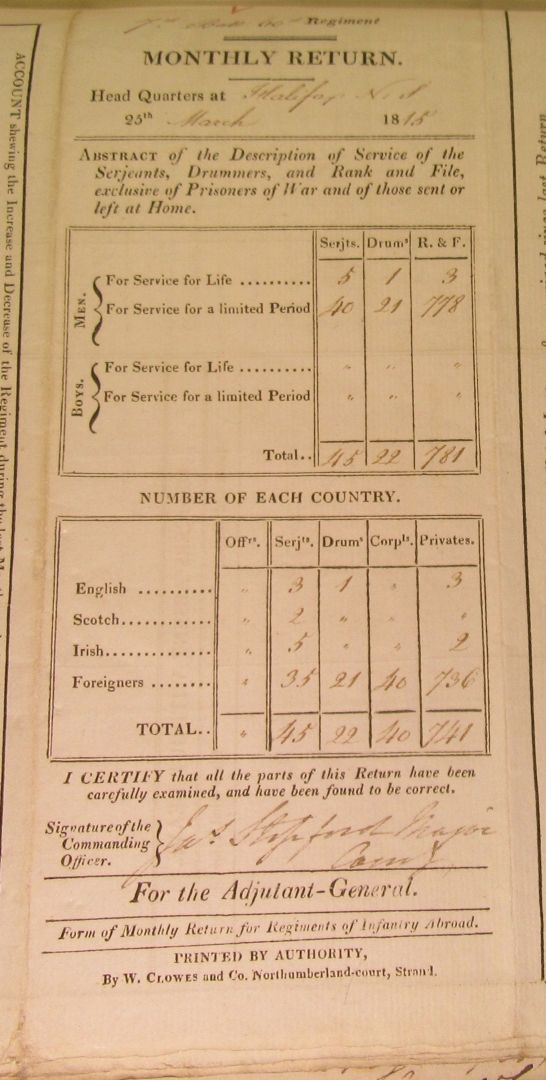 7th Batt 60th Regiment
MONTHLY RETURN.
Head Quarters at Halifax N.S
25th March 1815
ABSTRACT of the Description of Service of the
Serjeants, Drummers, and Rank and File,
exclusive of Prisoners of War and of those sent or
left at Home.
Serjts. Drums R. & F.
MEN.
For Service for Life .......... 5 1 3
For Service for a limited Period 40 21 778
BOYS.
For Service for Life .......... " " "
For Service for a limited Period " " "
Total.. 45 22 781
NUMBER OF EACH COUNTRY.
Offrs. Serjts. Drums Corpls. Privates.
English .......... " 3 1 " 3
Scotch............ " 2 " " "
Irish............. " 5 " " 2
Foreigners ........ " 35 21 40 736
TOTAL.. " 45 22 40 741
I CERTIFY that all the parts of this Return have been
carefully examined, and have been found to be correct.
Signature of the
Commanding
Officer.
Jas Stopford Major
Comg
For the Adjutant-General.
Form of Monthly Return for Regiments of Infantry Abroad.
PRINTED BY AUTHORITY,
By W. CLOWES and Co. Northumberland-court, Strand.
ACCOUNT shewing the Increase and Decrease of the Regiment during the last
since last Return